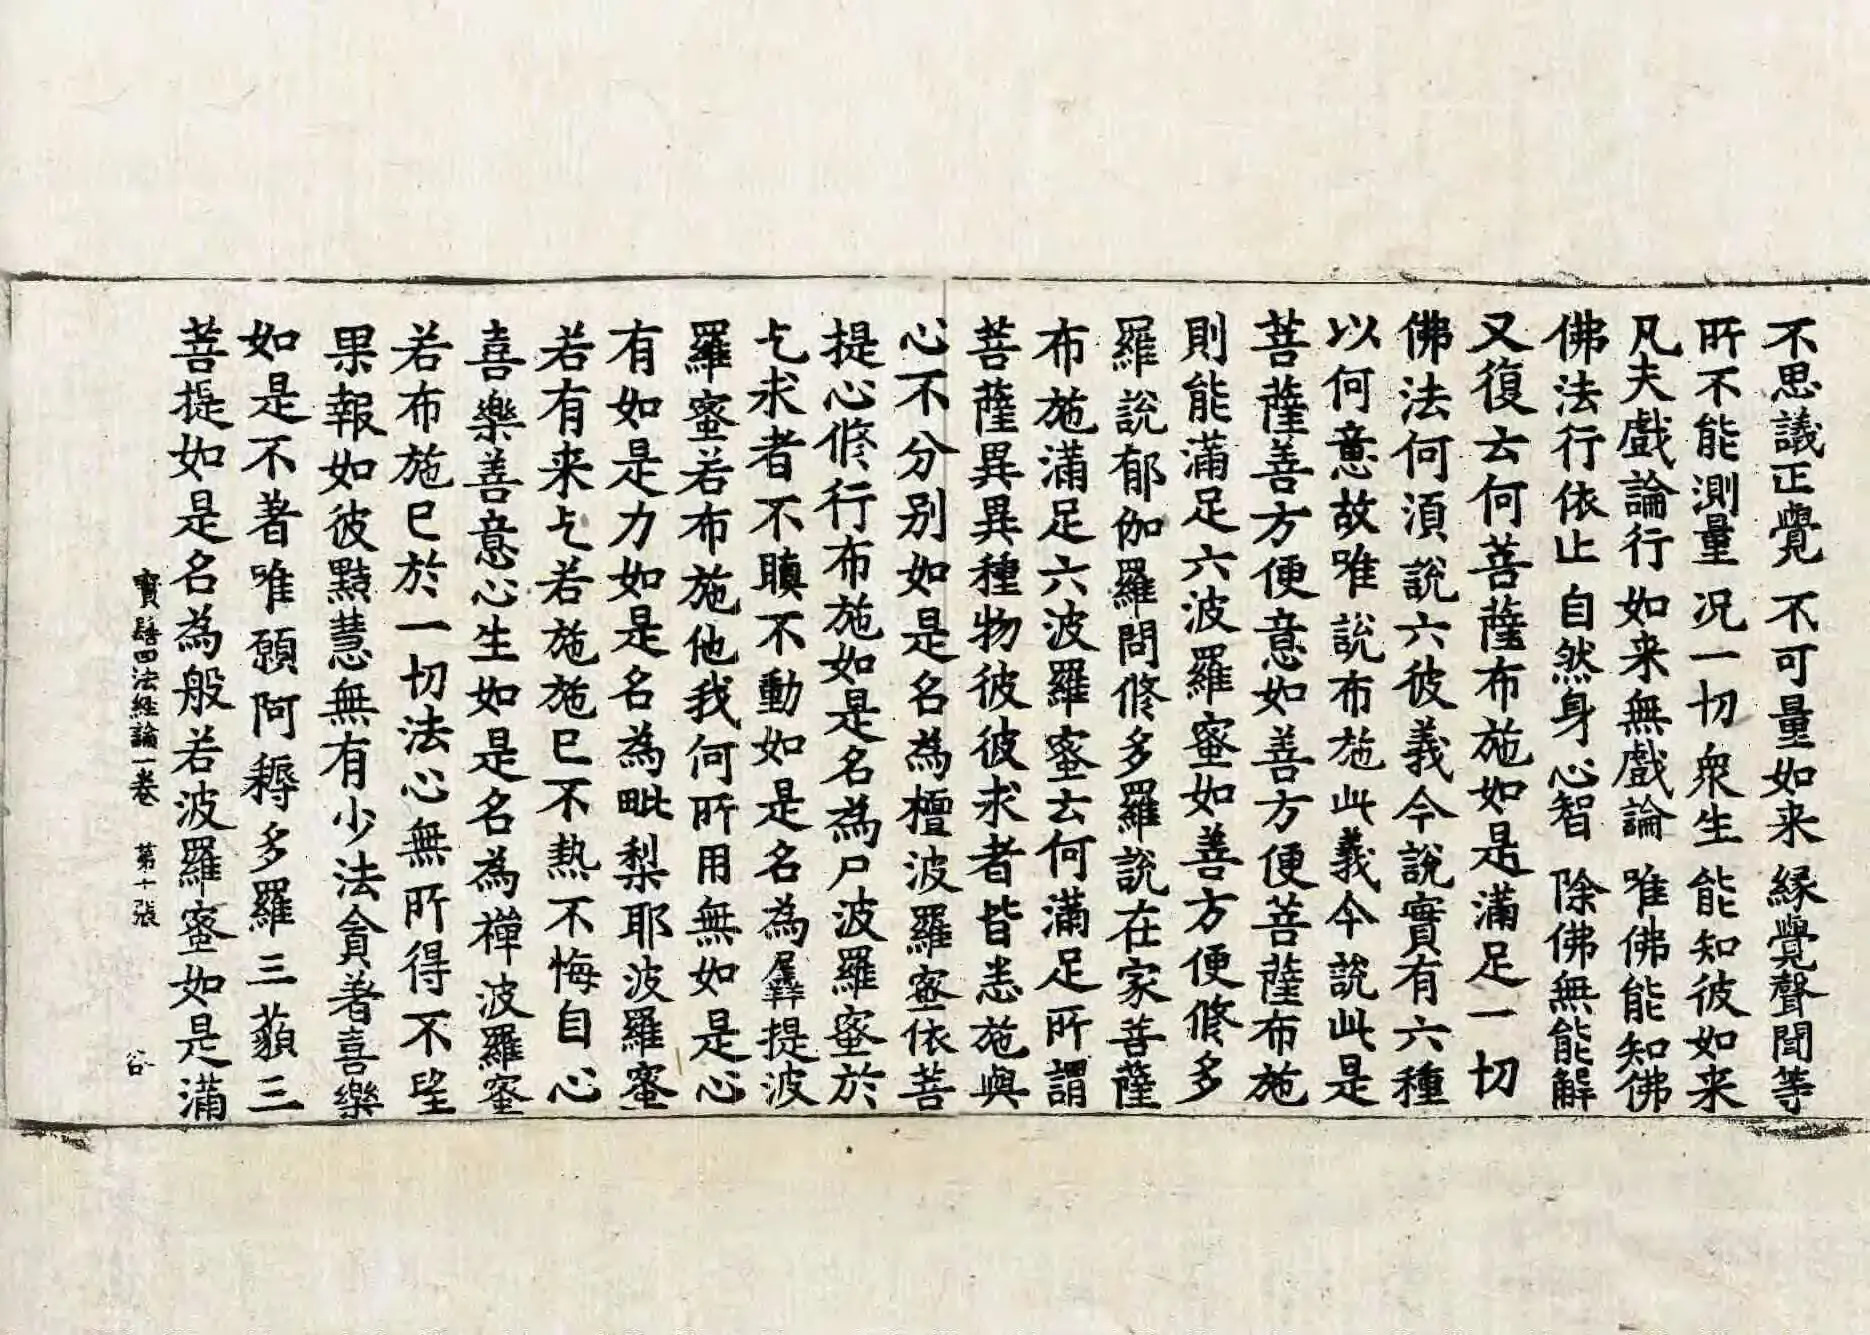 不思議正覺 不可量如来 縁覺聲聞等
所不能測量 况一切衆生 能知彼如来
凡夫戲論行 如来無戲論 唯佛能知佛
佛法行依止 自然身心智 除佛無能解
又復云何菩薩布施如是滿足一切
佛法何湏說六彼義今說實有六種
以何意故唯說布施此義今說此是
菩薩善方便意如善方便菩薩布施
則能滿足六波羅蜜如善方便修多
羅說郁伽羅問修多羅說在家菩薩
布施滿足六波羅蜜云何滿足所謂
菩薩異異種物彼彼求者皆悉施與
心不分別如是名為檀波羅蜜依菩
提心修行布施如是名為尸波羅蜜於
乞求者不瞋不動如是名為羼提波
羅蜜若布施他我何所用無如是心
有如是力如是名為毗梨耶波羅蜜
若有来乞若施施已不熱不悔自心
喜樂善意心生如是名為禪波羅蜜
若布施已於一切法心無所得不望
果報如彼黠慧無有少法貪著喜樂
如是不著唯願阿耨多羅三藐三
菩提如是名為般若波羅蜜如是滿
寳髻四法經論一卷 第十張 谷